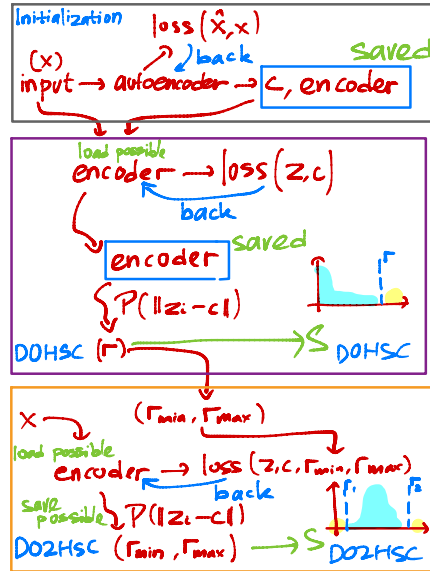 Initialization
loss(x̂, x)
back
saved
(x)
input → autoencoder → c, encoder
load possible
encoder → loss(z, c)
back
encoder saved
P(||zi - c||)
r
DOHSC (r) → S DOHSC
x
(rmin, rmax)
load possible
encoder → loss(z, c, rmin, rmax)
back
save possible
P(||zi - c||)
r1 r2
DO2HSC (rmin, rmax) → S DO2HSC